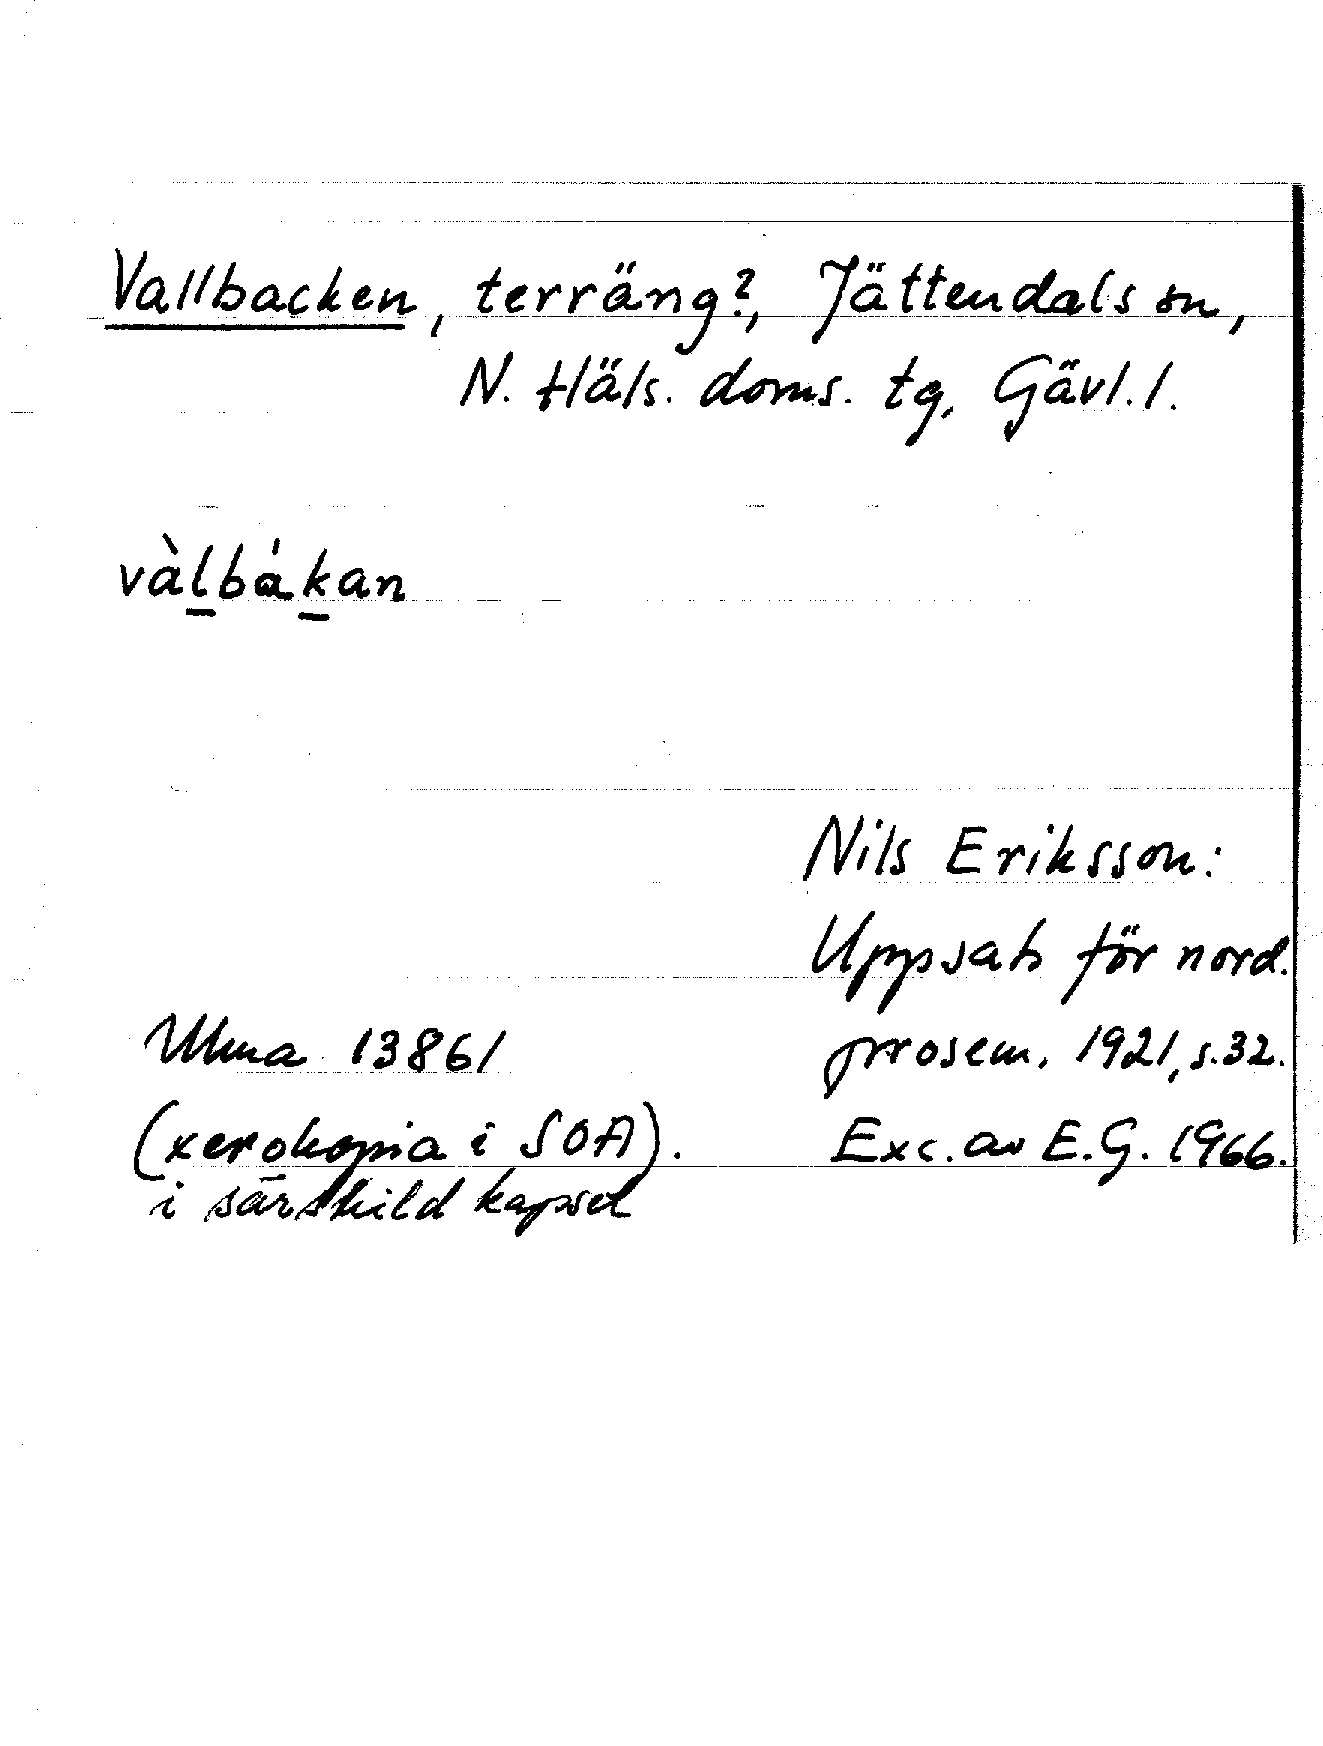 Vallbacken, terräng?, Jättendals sn,
N. Häls. doms. tg, Gävl. l.
vàl̲bák̲an
Nils Eriksson:
Uppsats för nord.
Ulma 13861 prosem. 1921, s. 32.
(xerokopia i SOA). Exc. av E.G. 1966.
i särskild kapsel